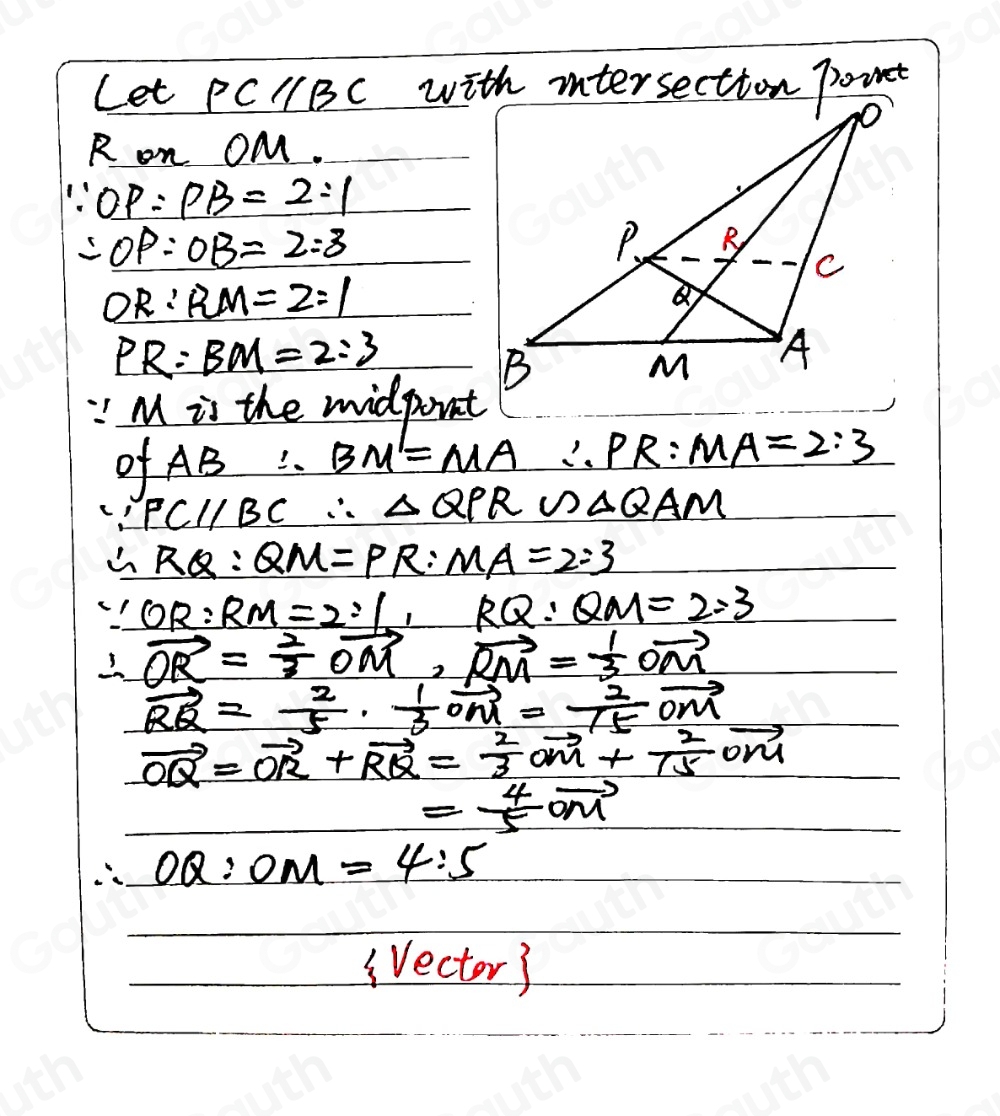 Let PC//BC with intersection point
R on OM.
∵ OP:PB=2:1
∴ OP:OB=2:3
OR:RM=2:1
PR:BM=2:3
∵ M is the midpoint
of AB ∴ BM=MA ∴ PR:MA=2:3
∵ PC//BC ∴ △QPR∽△QAM
∴ RQ:QM=PR:MA=2:3
∵ OR:RM=2:1, RQ:QM=2:3
∴ $\overrightarrow{OR}=\frac{2}{3}\overrightarrow{OM}$, $\overrightarrow{RM}=\frac{1}{3}\overrightarrow{OM}$
$\overrightarrow{RQ}=\frac{2}{5}\cdot\frac{1}{3}\overrightarrow{OM}=\frac{2}{15}\overrightarrow{OM}$
$\overrightarrow{OQ}=\overrightarrow{OR}+\overrightarrow{RQ}=\frac{2}{3}\overrightarrow{OM}+\frac{2}{15}\overrightarrow{OM}$
$=\frac{4}{5}\overrightarrow{OM}$
∴ OQ:OM=4:5
{Vector}
O
P R C
Q
B M A
Gauth